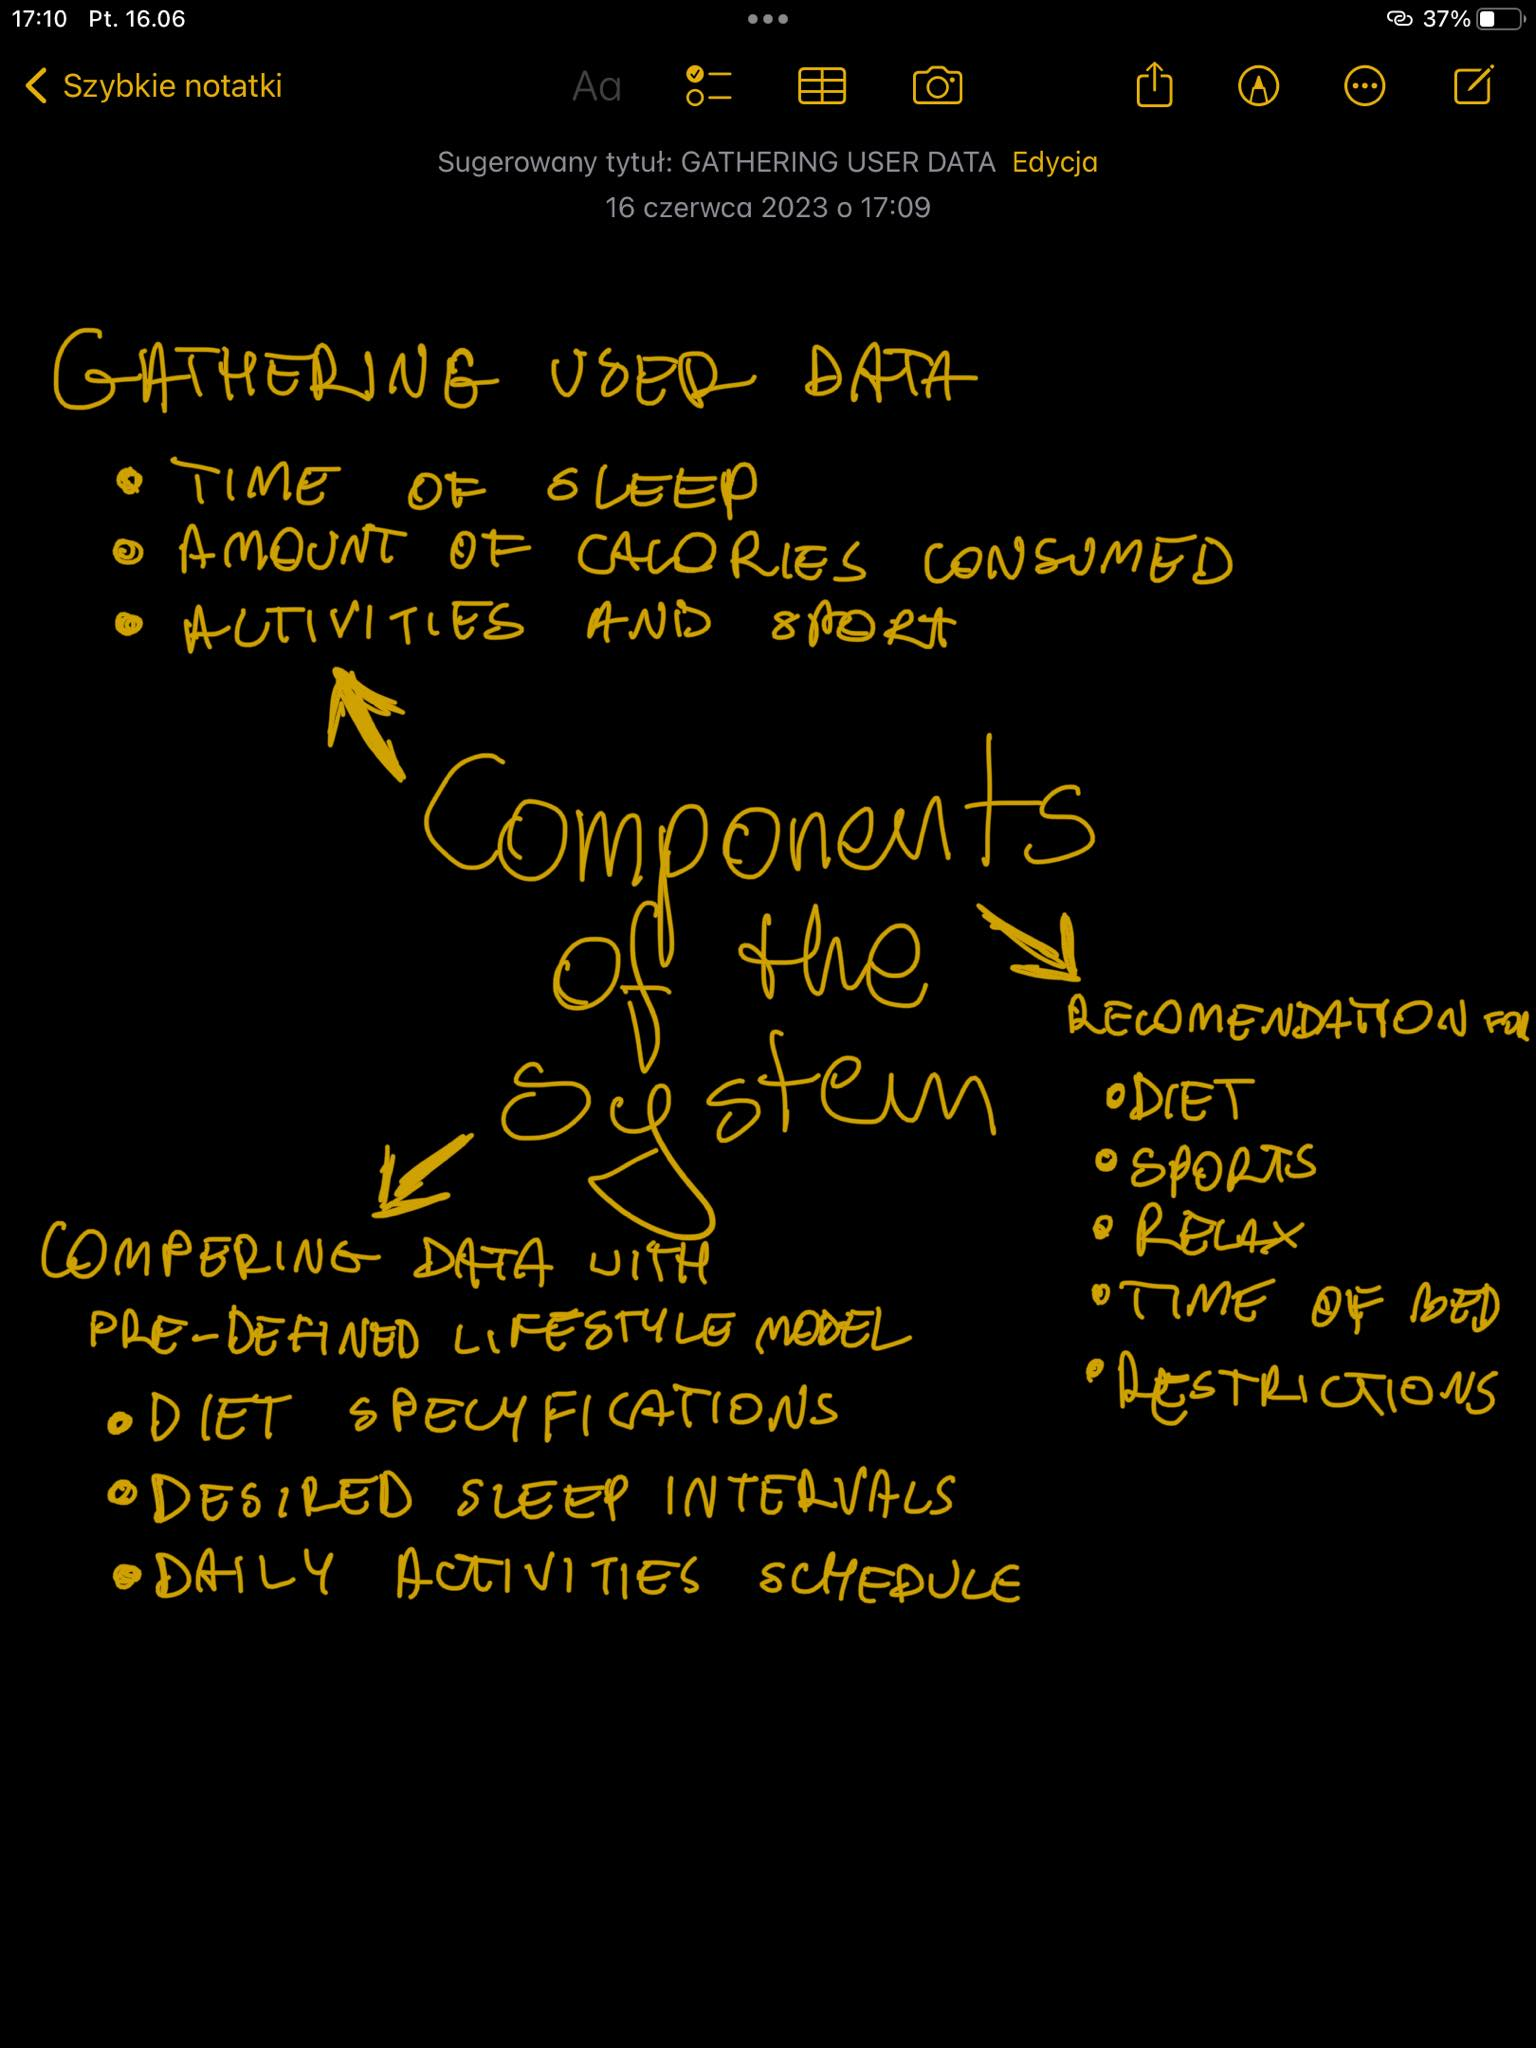 17:10 Pt. 16.06
37%
Szybkie notatki
Aa
Sugerowany tytuł: GATHERING USER DATA Edycja
16 czerwca 2023 o 17:09
GATHERING USER DATA
• TIME OF SLEEP
• AMOUNT OF CALORIES CONSUMED
• ACTIVITIES AND SPORT
Components
of the
System
RECOMENDATION FOR
• DIET
• SPORTS
• RELAX
• TIME OF BED
• RESTRICTIONS
COMPERING DATA WITH
PRE-DEFINED LIFESTYLE MODEL
• DIET SPECYFICATIONS
• DESIRED SLEEP INTERVALS
• DAILY ACTIVITIES SCHEDULE